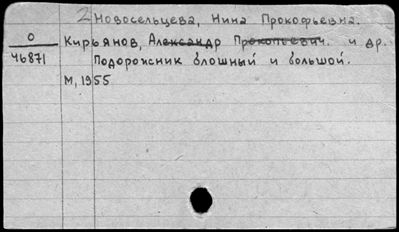 2 Новосельцева, Нина Прокофьевна.
О Кирьянов, Александр Прокопьевич. и др.
46871 Подорожник блошный и большой.
М, 1955